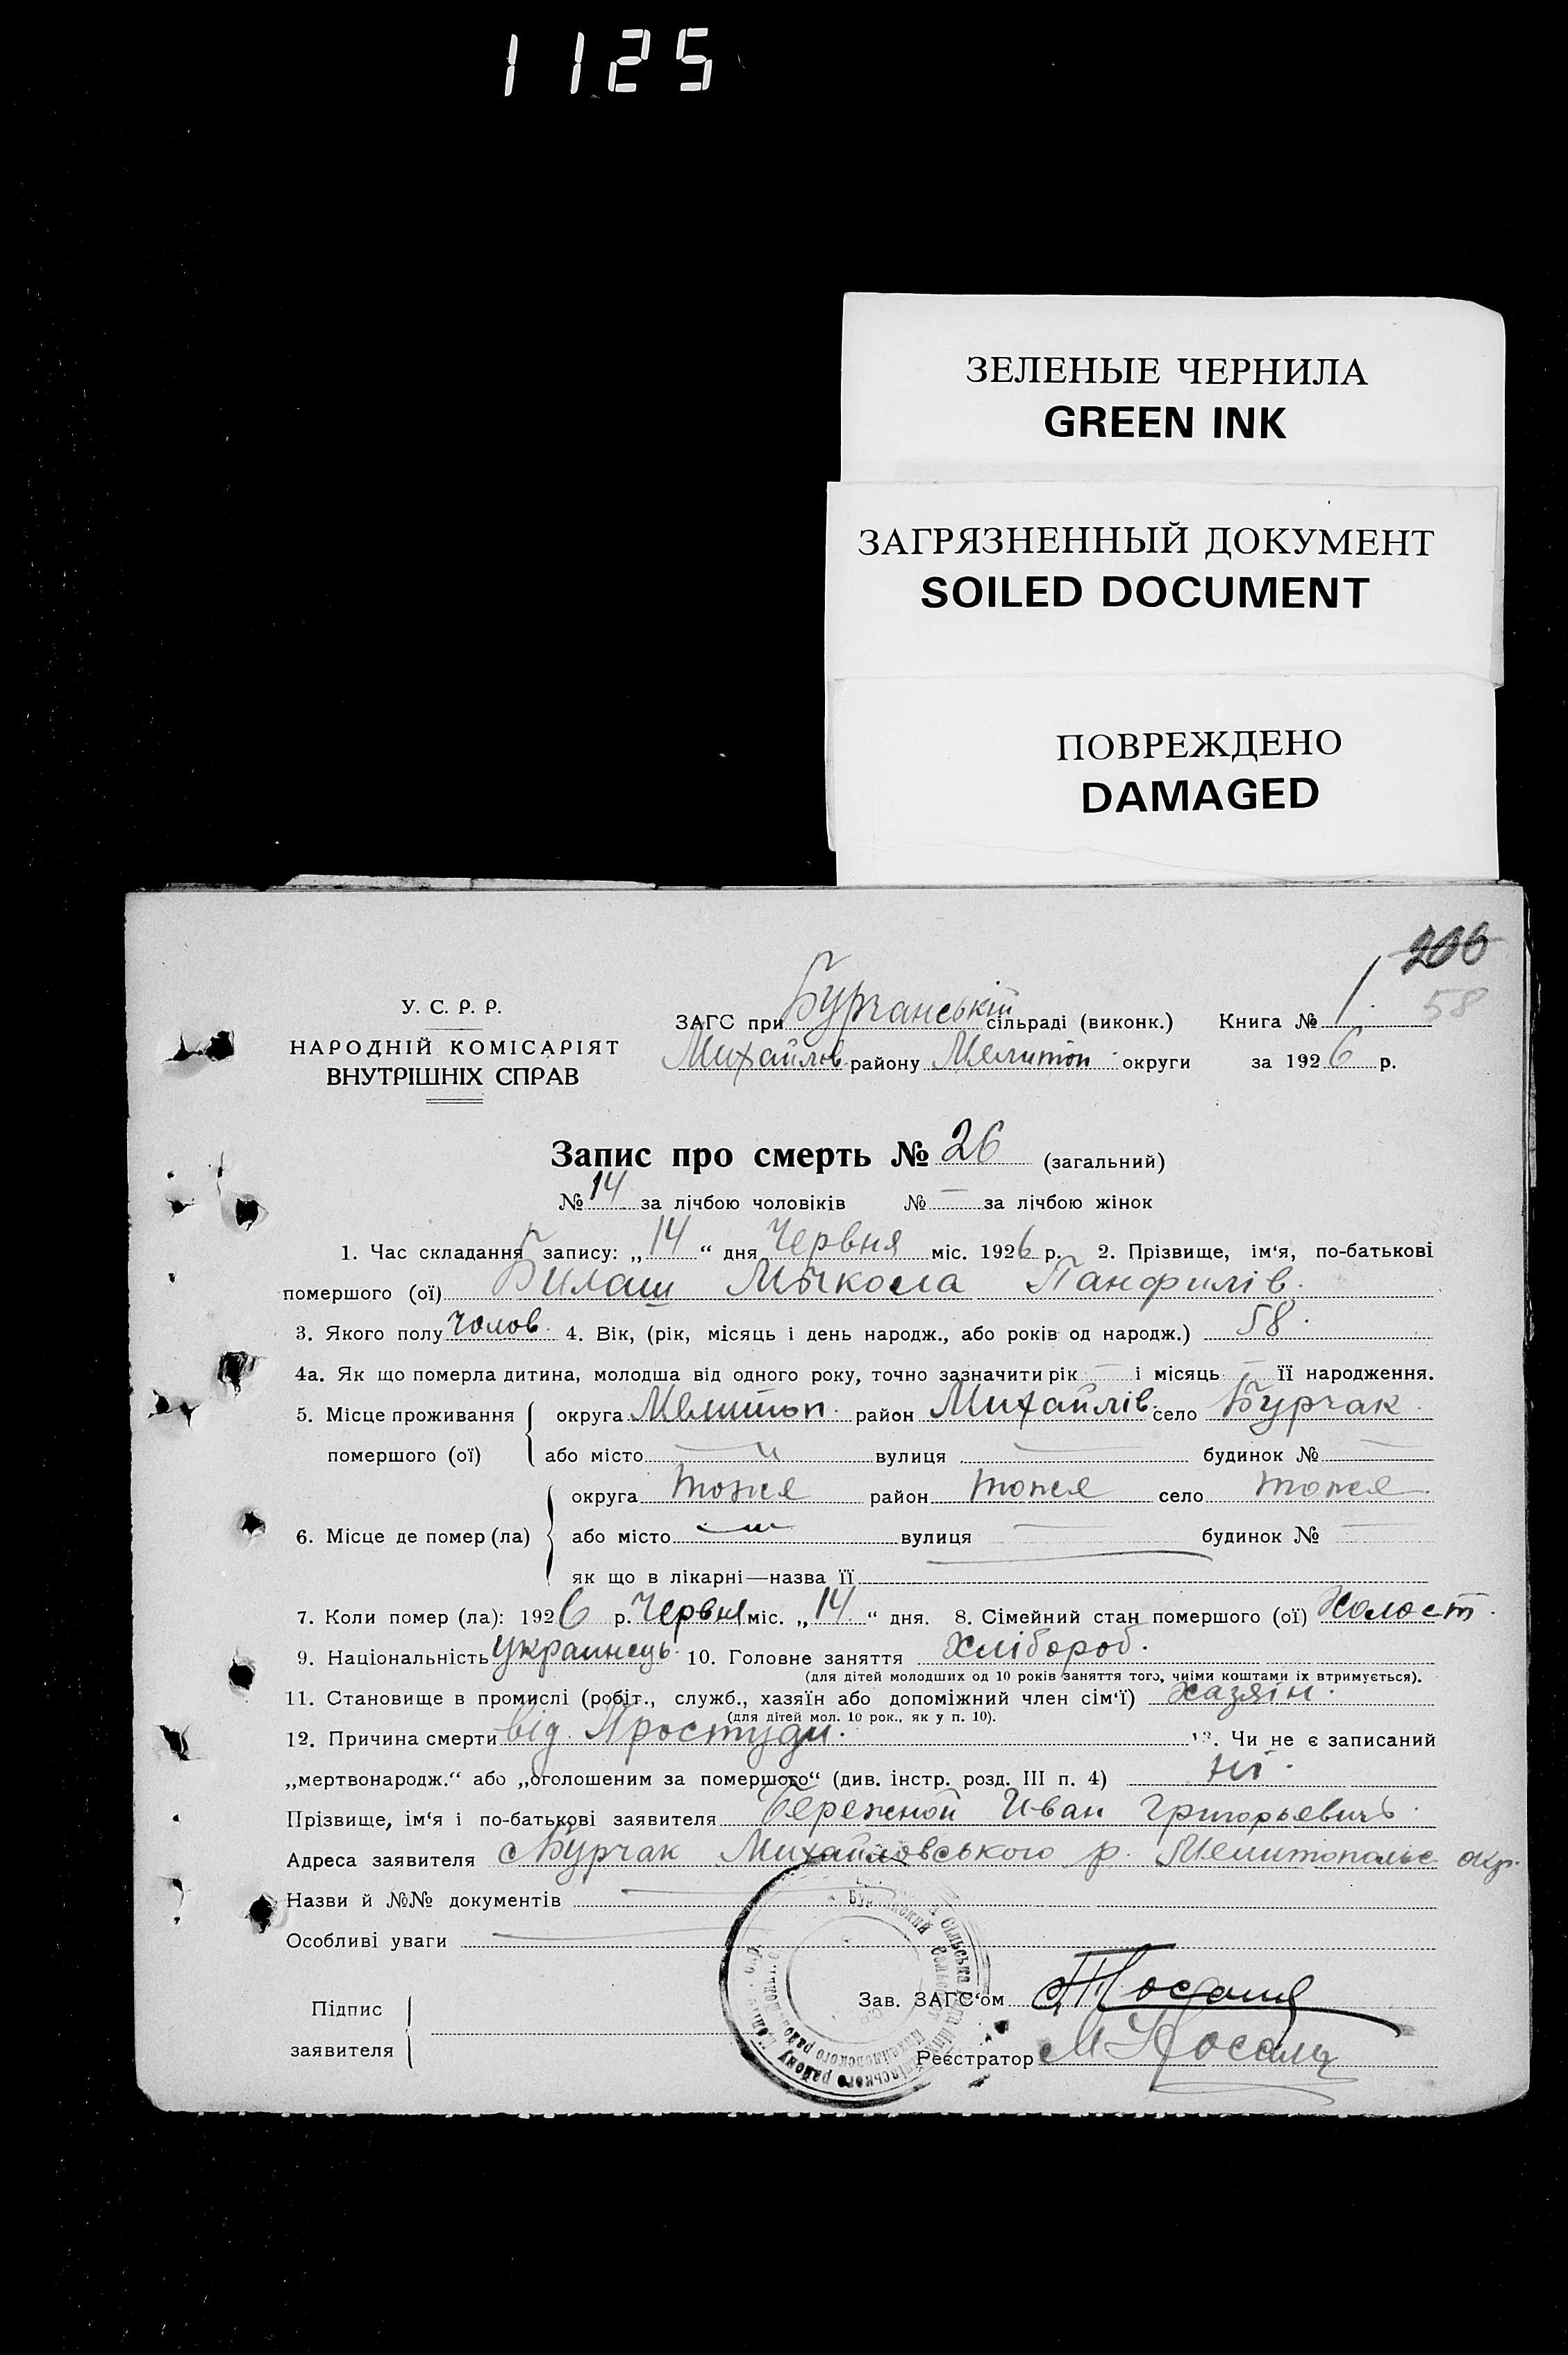 1125
ЗЕЛЕНЫЕ ЧЕРНИЛА
GREEN INK
ЗАГРЯЗНЕННЫЙ ДОКУМЕНТ
SOILED DOCUMENT
ПОВРЕЖДЕНО
DAMAGED
206
58
У. С. Р. Р.
НАРОДНІЙ КОМІСАРІЯТ
ВНУТРІШНІХ СПРАВ
ЗАГС при Бурчанській сільраді (виконк.) Книга № 1.
Михайлів району Мелитоп. округи за 1926 р.
Запис про смерть № 26 (загальний)
№ 14 за лічбою чоловіків № — за лічбою жінок
1. Час складання запису: „14“ дня Червня міс. 1926 р. 2. Прізвище, ім‘я, по-батькові
помершого (ої) Билаш Мыкола Панфилів.
3. Якого полу чолов. 4. Вік, (рік, місяць і день народж., або років од народж.) 58.
4а. Як що померла дитина, молодша від одного року, точно зазначити рік — і місяць — її народження.
5. Місце проживання округа Мелитоп. район Михайлів. село Бурчак.
помершого (ої) або місто — вулиця — будинок № —
округа тоже район тоже село тоже
6. Місце де помер (ла) або місто — вулиця — будинок № —
як що в лікарні—назва її —
7. Коли помер (ла): 1926 р. Червня міс. „14“ дня. 8. Сімейний стан помершого (ої) Холост.
9. Національність Украинець. 10. Головне заняття Хлібороб.
(для дітей молодших од 10 років заняття того, чиїми коштами їх втримується).
11. Становище в промислі (робіт., служб., хазяїн або допоміжний член сім‘ї) хазяін.
(для дітей мол. 10 рок., як у п. 10).
12. Причина смерти від Простуди. 13. Чи не є записаний
„мертвонародж.“ або „оголошеним за помершого“ (див. інстр. розд. III п. 4) ні.
Прізвище, ім‘я і по-батькові заявителя Бережной Иван Григорьевичь.
Адреса заявителя с Бурчак Михайловського р. Мелитопольс окр.
Назви й №№ документів —
Особливі уваги —
Підпис
заявителя
Зав. ЗАГС‘ом
Реєстратор